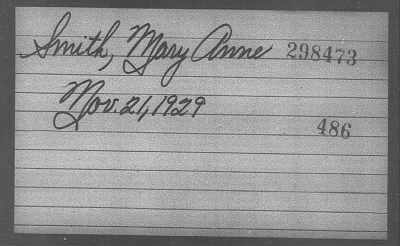 Smith, Mary Anne 298473
Nov. 21, 1929
486